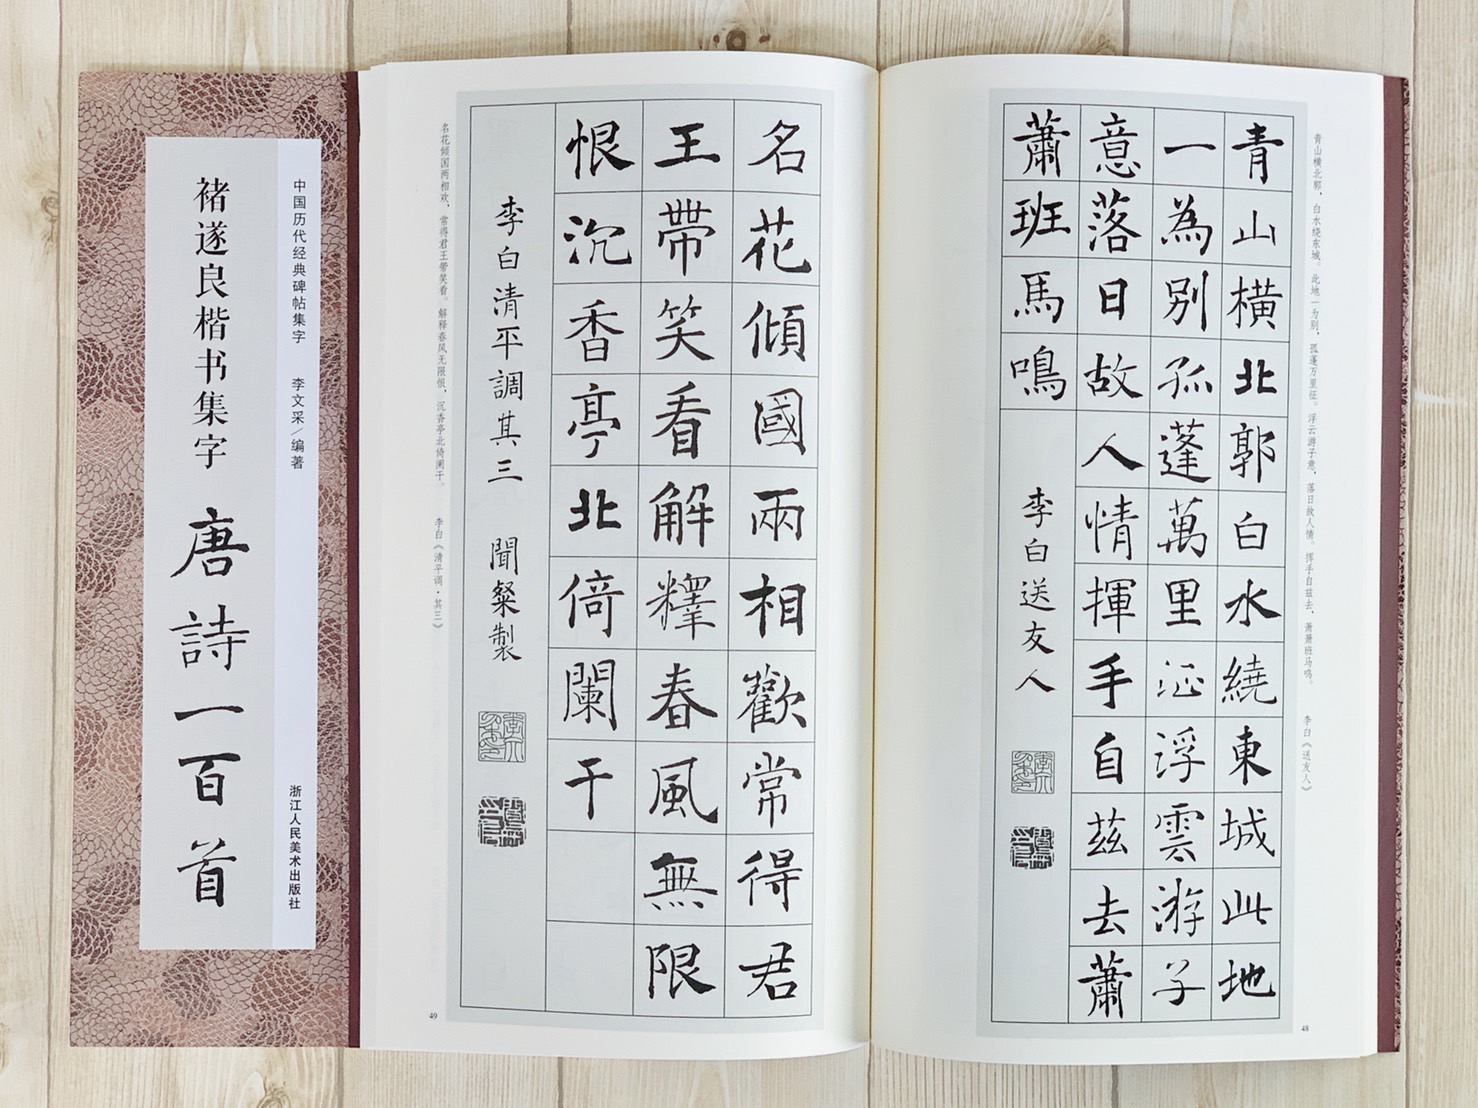 中国历代经典碑帖集字 李文采／编著 浙江人民美术出版社
褚遂良楷书集字 唐詩一百首
青山横北郭，白水绕东城。此地一为别，孤蓬万里征。浮云游子意，落日故人情。挥手自兹去，萧萧班马鸣。
李白《送友人》
青山橫北郭白水繞東城此地
一為別孤蓬萬里征浮雲游子
意落日故人情揮手自茲去蕭
蕭班馬鳴
李白送友人
48
名花傾國兩相歡常得君
王帶笑看解釋春風無限
恨沉香亭北倚闌干
李白清平調其三 聞粲製
名花倾国两相欢，常得君王带笑看。解释春风无限恨，沉香亭北倚阑干。
李白《清平调·其三》
49